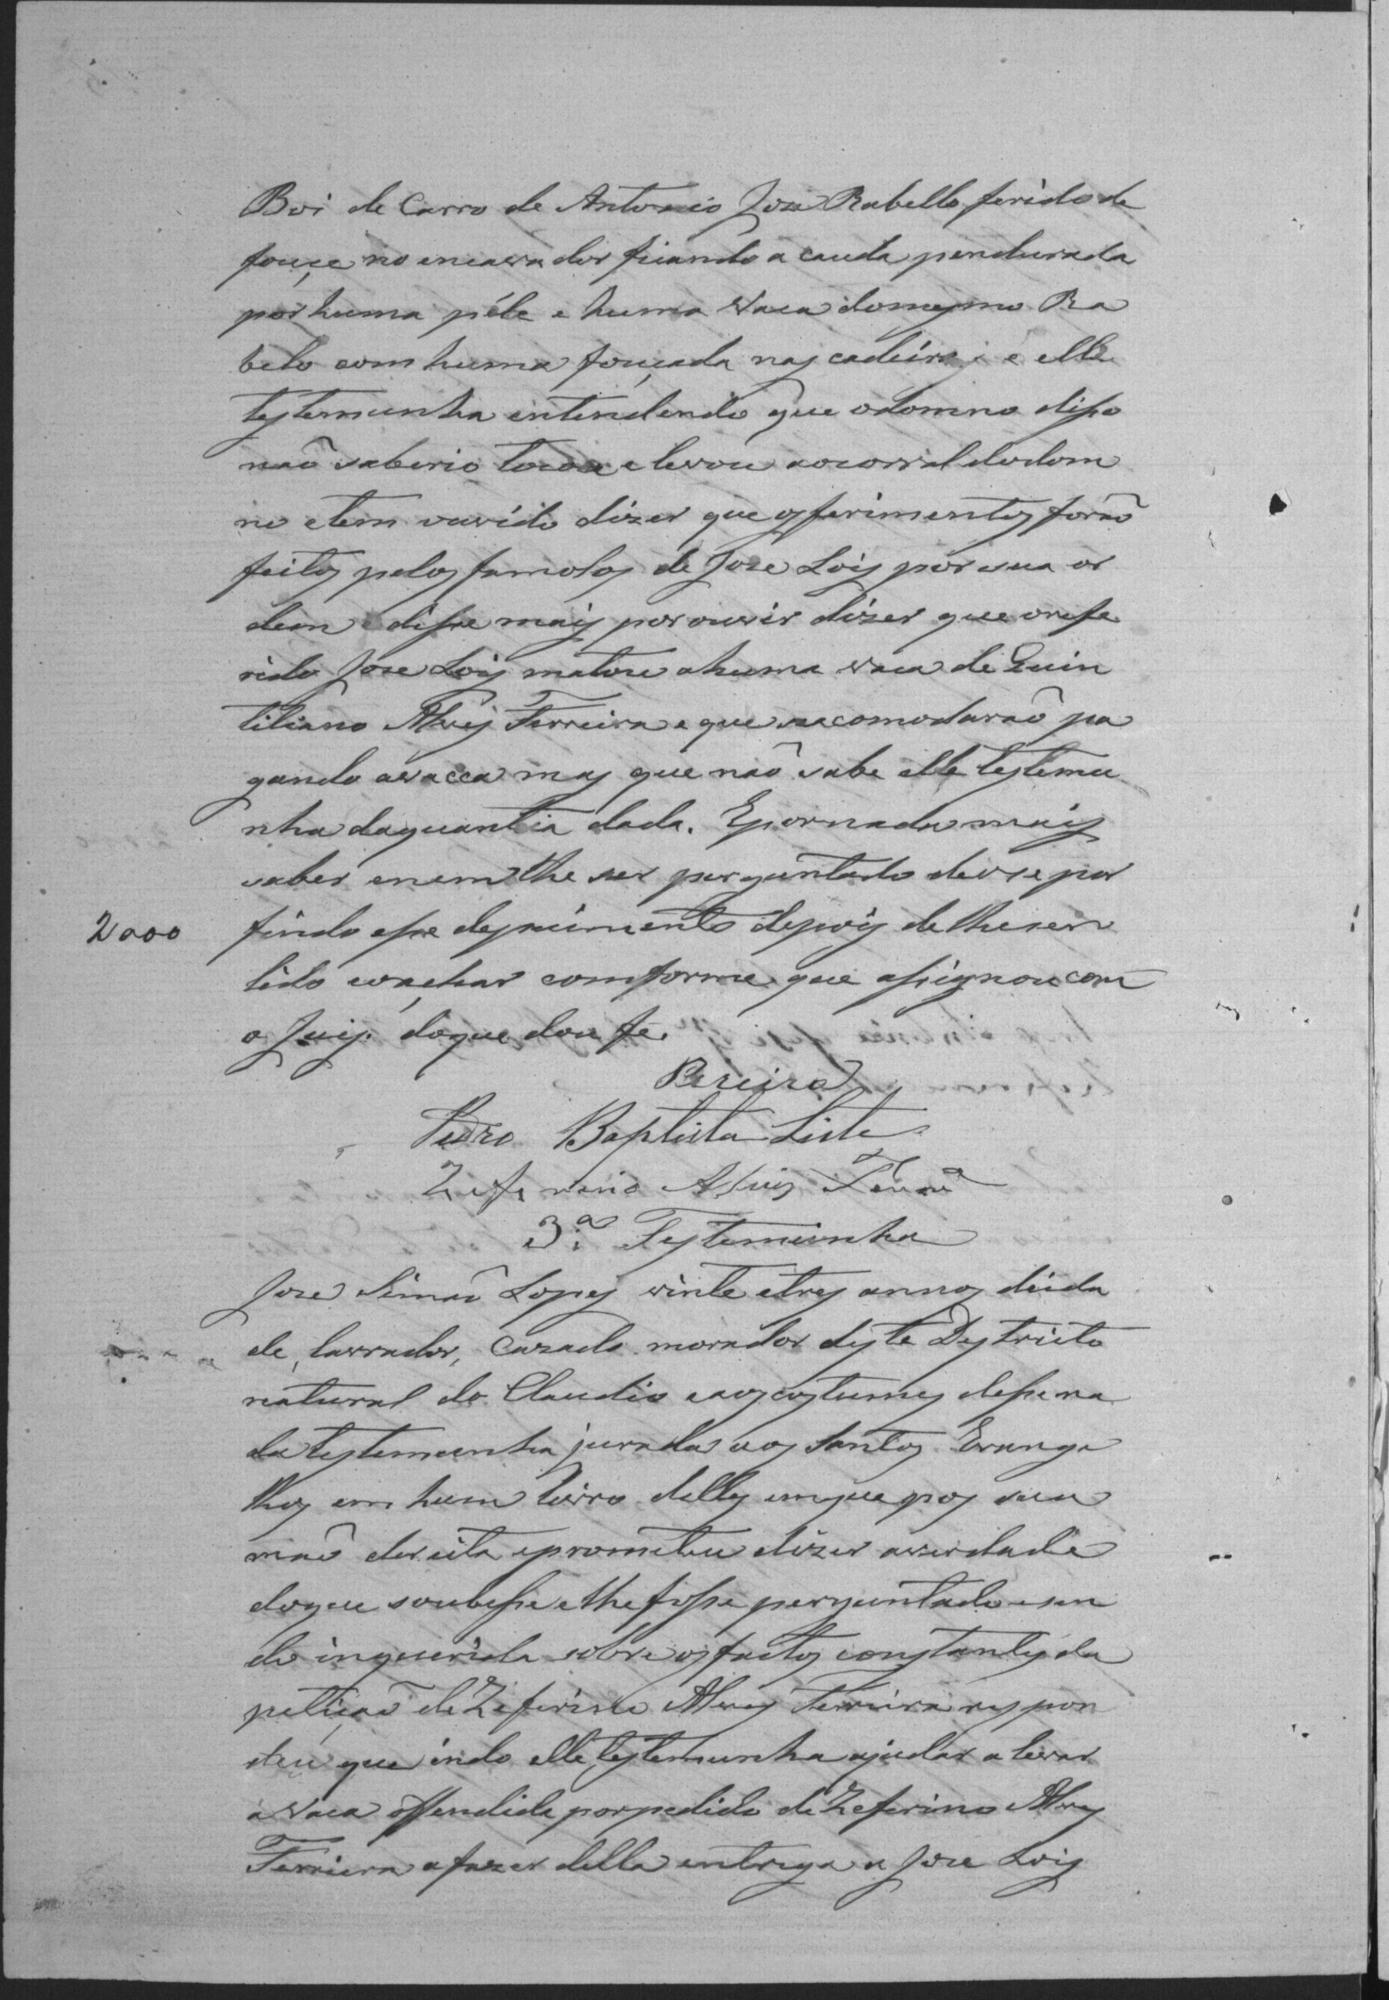 Boi de Carro de Antonio Jose Rabello ferido de
fouçe no encavador ficando a cauda pendurada
por huma péle e huma vaca domesmo Ra
belo com huma fouçada nas cadeiras e elle
testemunha entendendo que odonno disso
naõ saberio tocou e levou aocorral dodon
no etem ouvido dizer que osferimentos foraõ
feitos pelos famolos de Jose Lois por sua or
dem e disse mais por ouvir dizer que orefe
rido Jose Lois matou a huma vaca de Quin
tiliano Alves Ferreira e que seacomodaraõ pa
gando avacca mas que naõ sabe elle testemu
nha daquantia dada. Epornada mais
saber enem lhe ser perguntado deose por
2000
findo esse depoimento depois de lheser
lido eoachar comforme que assignou com
o Juis, doque dou fe.
Pereira
Pedro Baptista Leite
Zeferino Alves Ferrª
3.ª Testemunha
Jose Simaõ Lopes vinte etres annos deida
de, lavrador, Cazado morador deste Destricto
natural do Claudio eaos costumes desse na
da testemunha jurada aos Santos Evange
lhos em hum livro delles emque pos sua
maõ dereita eprometeu dizer averdade
doque soubesse e lhe fosse perguntado esen
do inquerida sobre os factos constantes da
petiçaõ de Zeferino Alves Ferreira respon
deu que indo elle testemunha ajudar a levar
a vaca offendida por pedido de Zeferino Alves
Ferreira a fazer della entrega a Jose Lois